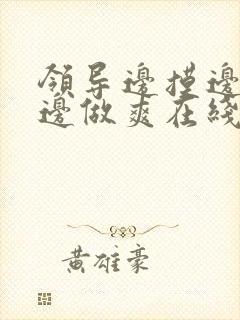 領导邊摸邊
邊做爽在綫
黄雄豪